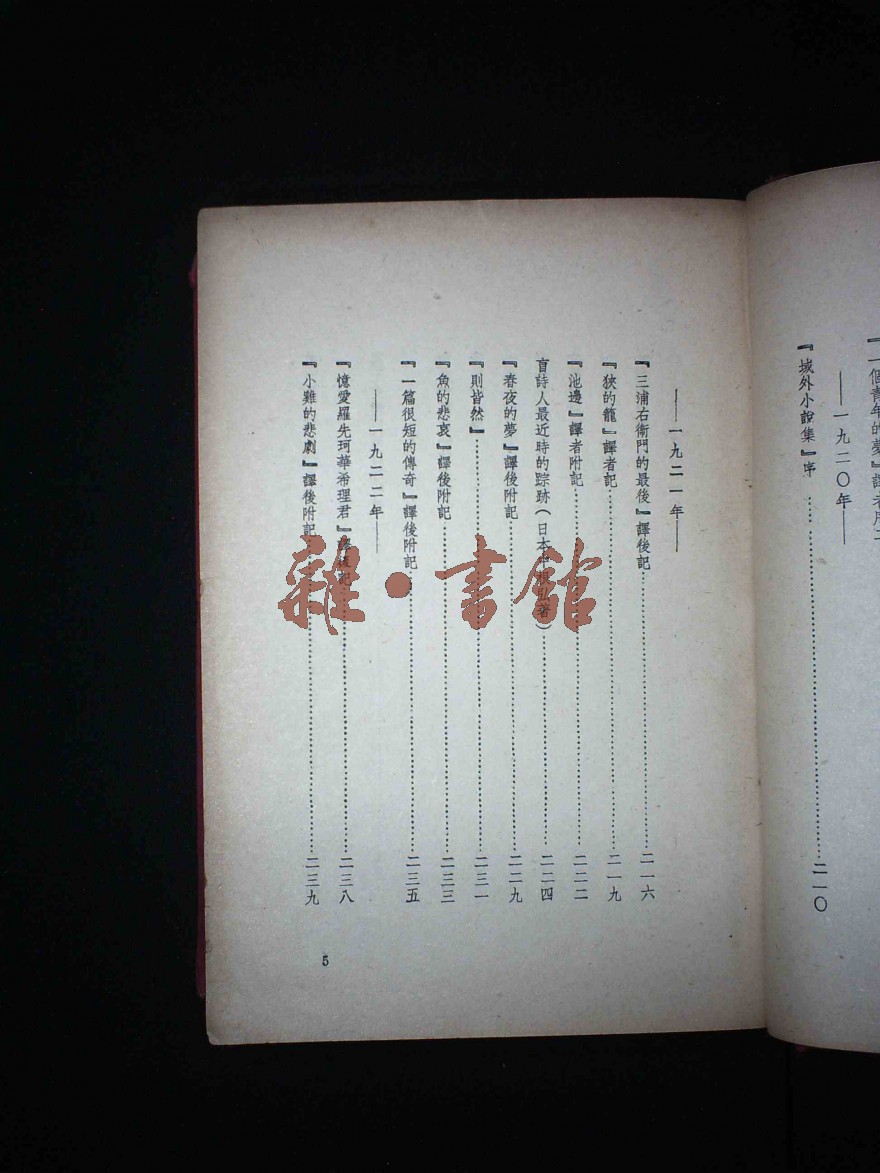 『一個青年的夢』譯者序二
——一九二〇年——
『域外小說集』序……二一〇
——一九二一年——
『三浦右衞門的最後』譯後記……二一六
『狹的籠』譯者記……二一九
『池邊』譯者附記……二二二
盲詩人最近時的踪跡(日本中根弘著)……二二四
『春夜的夢』譯後附記……二二九
『則皆然』……二三一
『魚的悲哀』譯後附記……二三三
『一篇很短的傳奇』譯後附記……二三五
——一九二二年——
『憶愛羅先珂華希理君』譯後記……二三八
『小雞的悲劇』譯後附記……二三九
5
雜·書館